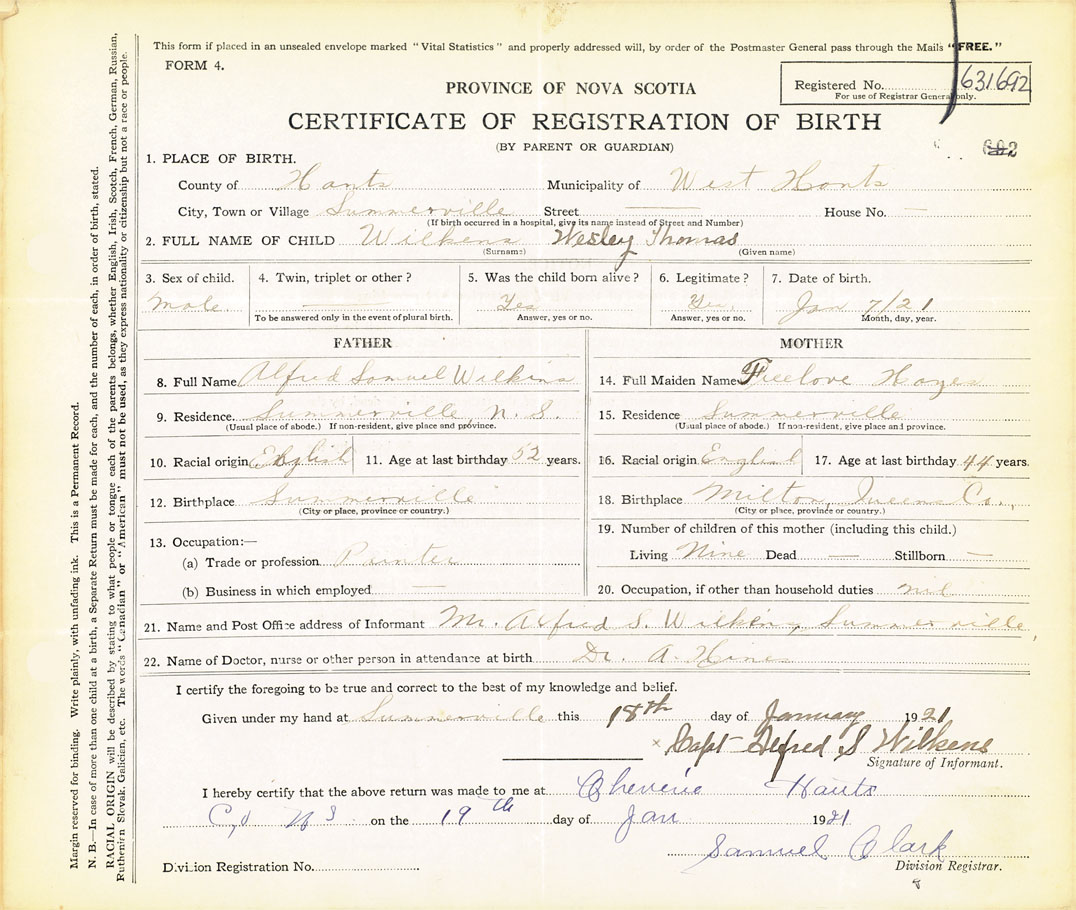 This form if placed in an unsealed envelope marked "Vital Statistics" and properly addressed will, by order of the Postmaster General pass through the Mails "FREE."
FORM 4.
Registered No. 631692
For use of Registrar General only.
PROVINCE OF NOVA SCOTIA
CERTIFICATE OF REGISTRATION OF BIRTH
(BY PARENT OR GUARDIAN)
602
1. PLACE OF BIRTH.
County of Hants Municipality of West Hants
City, Town or Village Summerville Street House No.
(If birth occurred in a hospital, give its name instead of Street and Number)
2. FULL NAME OF CHILD Wilkens Wesley Thomas
(Surname) (Given name)
3. Sex of child. 4. Twin, triplet or other? 5. Was the child born alive? 6. Legitimate? 7. Date of birth.
Male. Yes Yes. Jan 7/21
To be answered only in the event of plural birth. Answer, yes or no. Answer, yes or no. Month, day, year.
FATHER
8. Full Name Alfred Samuel Wilkins
9. Residence. Summerville N. S.
(Usual place of abode.) If non-resident, give place and province.
10. Racial origin English 11. Age at last birthday 52 years.
12. Birthplace Summerville
(City or place, province or country.)
13. Occupation:—
(a) Trade or profession
(b) Business in which employed
MOTHER
14. Full Maiden Name Freelove Hayes
15. Residence Summerville
(Usual place of abode.) If non-resident, give place and province.
16. Racial origin English 17. Age at last birthday 44 years.
18. Birthplace Milton, Queens Co.,
(City or place, province or country.)
19. Number of children of this mother (including this child.)
Living Nine Dead — Stillborn —
20. Occupation, if other than household duties nil
21. Name and Post Office address of Informant Mr. Alfred S. Wilkens, Summerville,
22. Name of Doctor, nurse or other person in attendance at birth Dr. A.
I certify the foregoing to be true and correct to the best of my knowledge and belief.
Given under my hand at Summerville this 18th day of January 1921
× Capt Alfred S Wilkens
Signature of Informant.
I hereby certify that the above return was made to me at Cheverie Hants
Co N S on the 19th day of Jan 1921
Samuel Clark
Division Registration No. Division Registrar.
8
Margin reserved for binding. Write plainly, with unfading ink. This is a Permanent Record.
N. B.—In case of more than one child at a birth, a Separate Return must be made for each, and the number of each, in order of birth, stated.
RACIAL ORIGIN will be described by stating to what people or tongue each of the parents belongs, whether English, Irish, Scotch, French, German, Russian,
Ruthenian, Slovak, Galician, etc. The words "Canadian" or "American" must not be used, as they express nationality or citizenship but not a race or people.